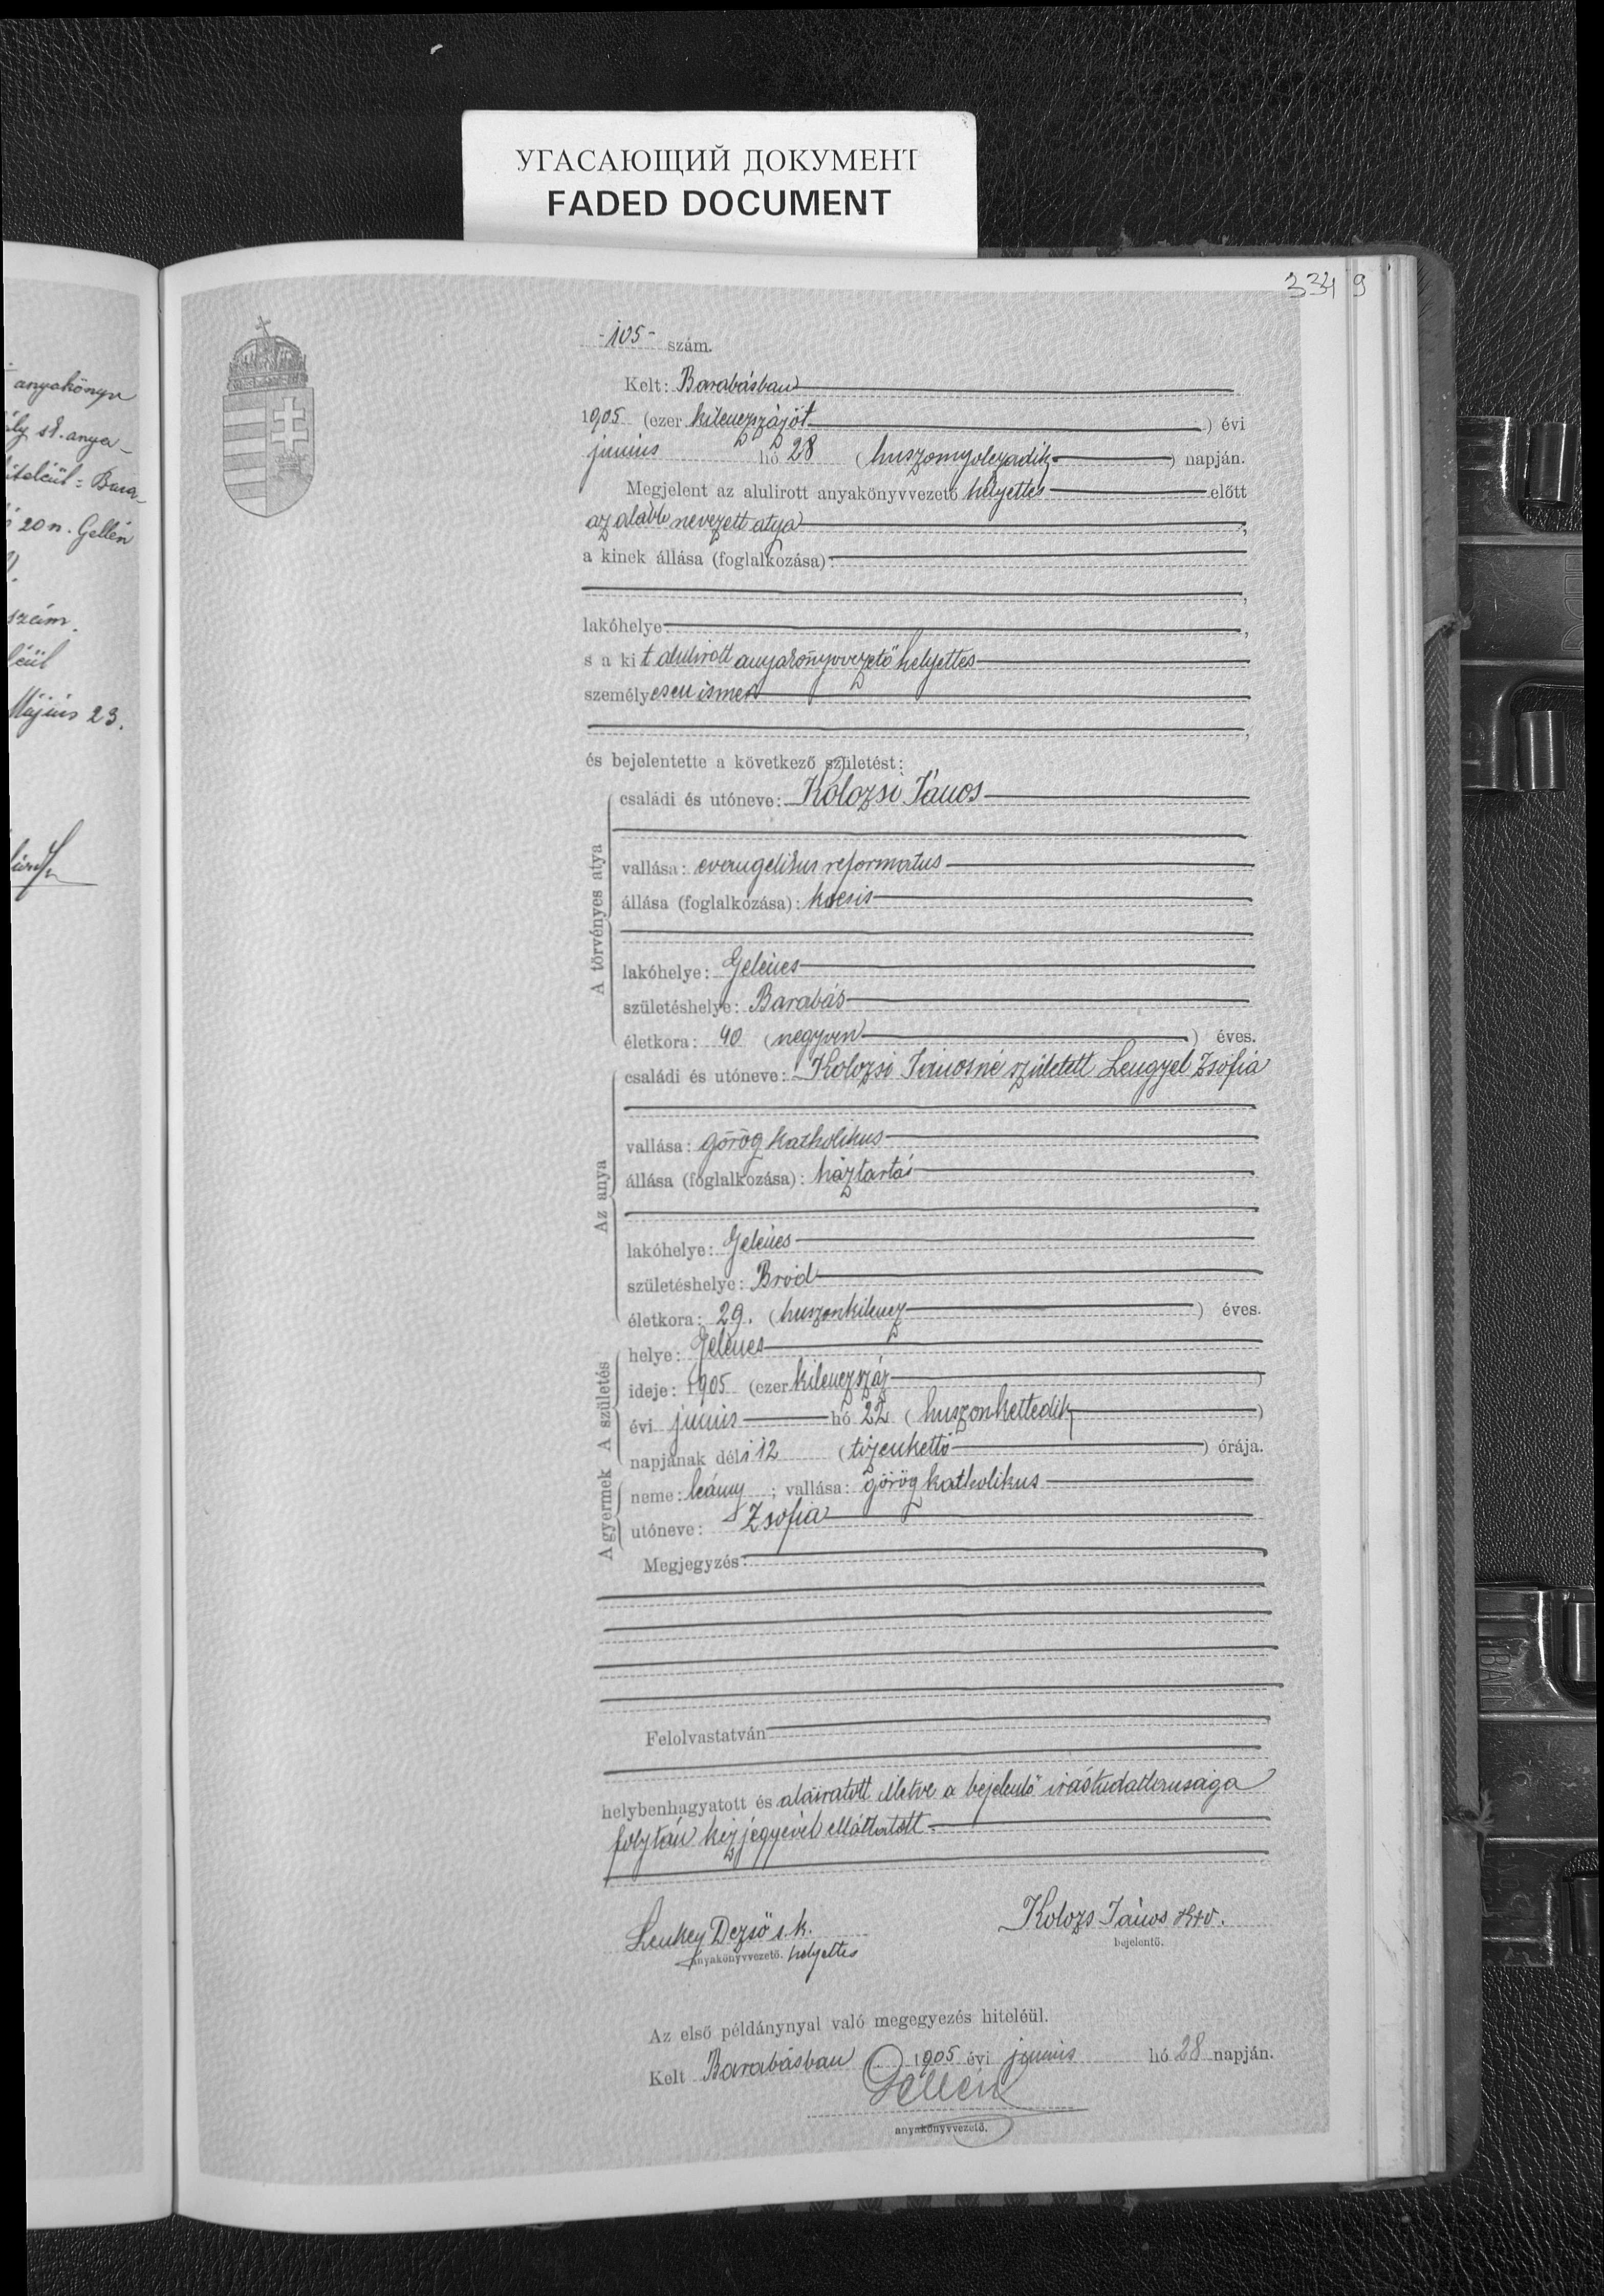 УГАСАЮЩИЙ ДОКУМЕНТ
FADED DOCUMENT
334 9
anyakönyv
st. anya-
Bara-
20 n. Gellén
szám.
Május 23.
-105- szám.
Kelt: Barabásban
1905 (ezer kilenczszázöt ) évi
junius hó 28 (huszonnyolczadik ) napján.
Megjelent az alulirott anyakönyvvezető helyettes előtt
az alább nevezett atya ,
a kinek állása (foglalkozása):
,
lakóhelye ,
s a kit alulirott anyakönyvvezető helyettes
személyesen ismer
,
és bejelentette a következő születést:
A törvényes atya
családi és utóneve: Kolozsi János
vallása: evangelikus reformatus
állása (foglalkozása): kocsis
lakóhelye: Gelénes
születéshelye: Barabás
életkora: 40 (negyven ) éves.
Az anya
családi és utóneve: Kolozsi Jánosné született Lengyel Zsófia
vallása: görög katholikus
állása (foglalkozása): háztartás
lakóhelye: Gelénes
születéshelye: Bród
életkora: 29. (huszonkilencz ) éves.
A születés
helye: Gelénes
ideje: 1905 (ezer kilenczszáz )
évi junius hó 22 (huszonkettedik )
napjának déli 12 (tizenkettő ) órája.
A gyermek
neme: leány ; vallása: görög katholikus
utóneve: Zsófia
Megjegyzés:
Felolvastatván
helybenhagyatott és aláiratott illetve a bejelentő irástudatlansága
folytán kézjegyével elláttatott.
Lenkey Dezső s.k. Kolozs János
anyakönyvvezető. helyettes bejelentő.
Az első példánynyal való megegyezés hiteléül.
Kelt Barabásban 1905 évi junius hó 28 napján.
Gellén
anyakönyvvezető.